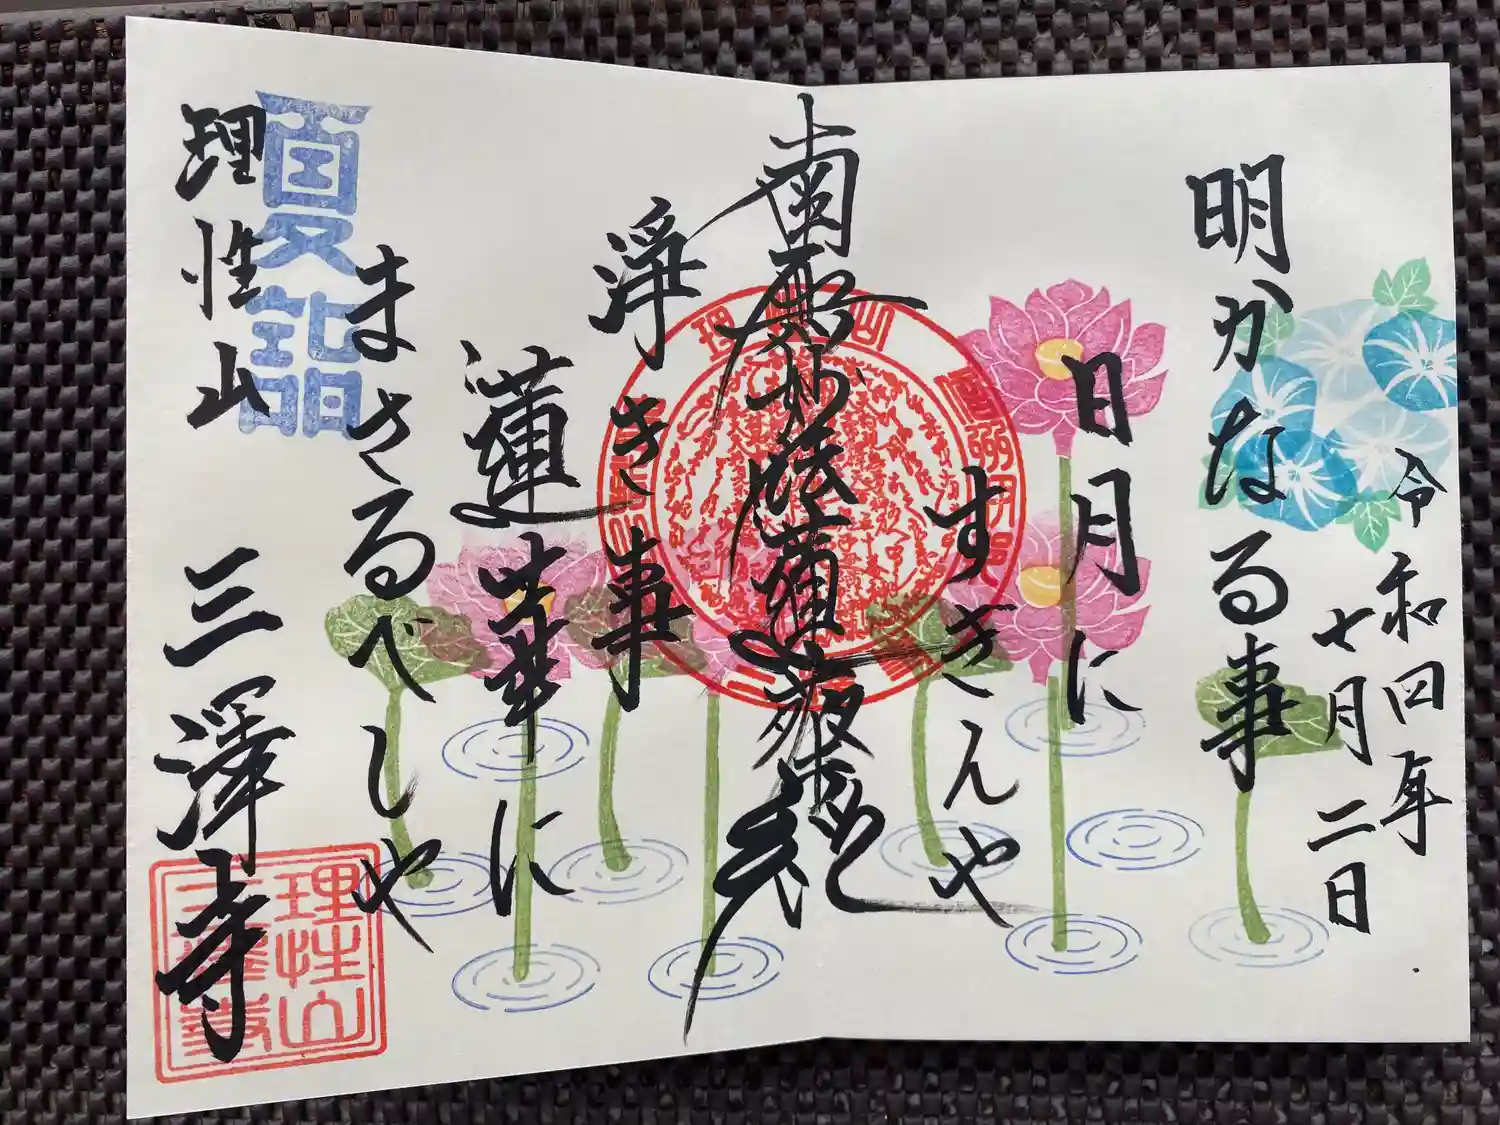 令和四年
七月二日
明かなる事
日月に
すきんや
南無妙法蓮華経
浄き事
蓮華に
まさるべしや
夏詣
理性山
三澤寺
理性山